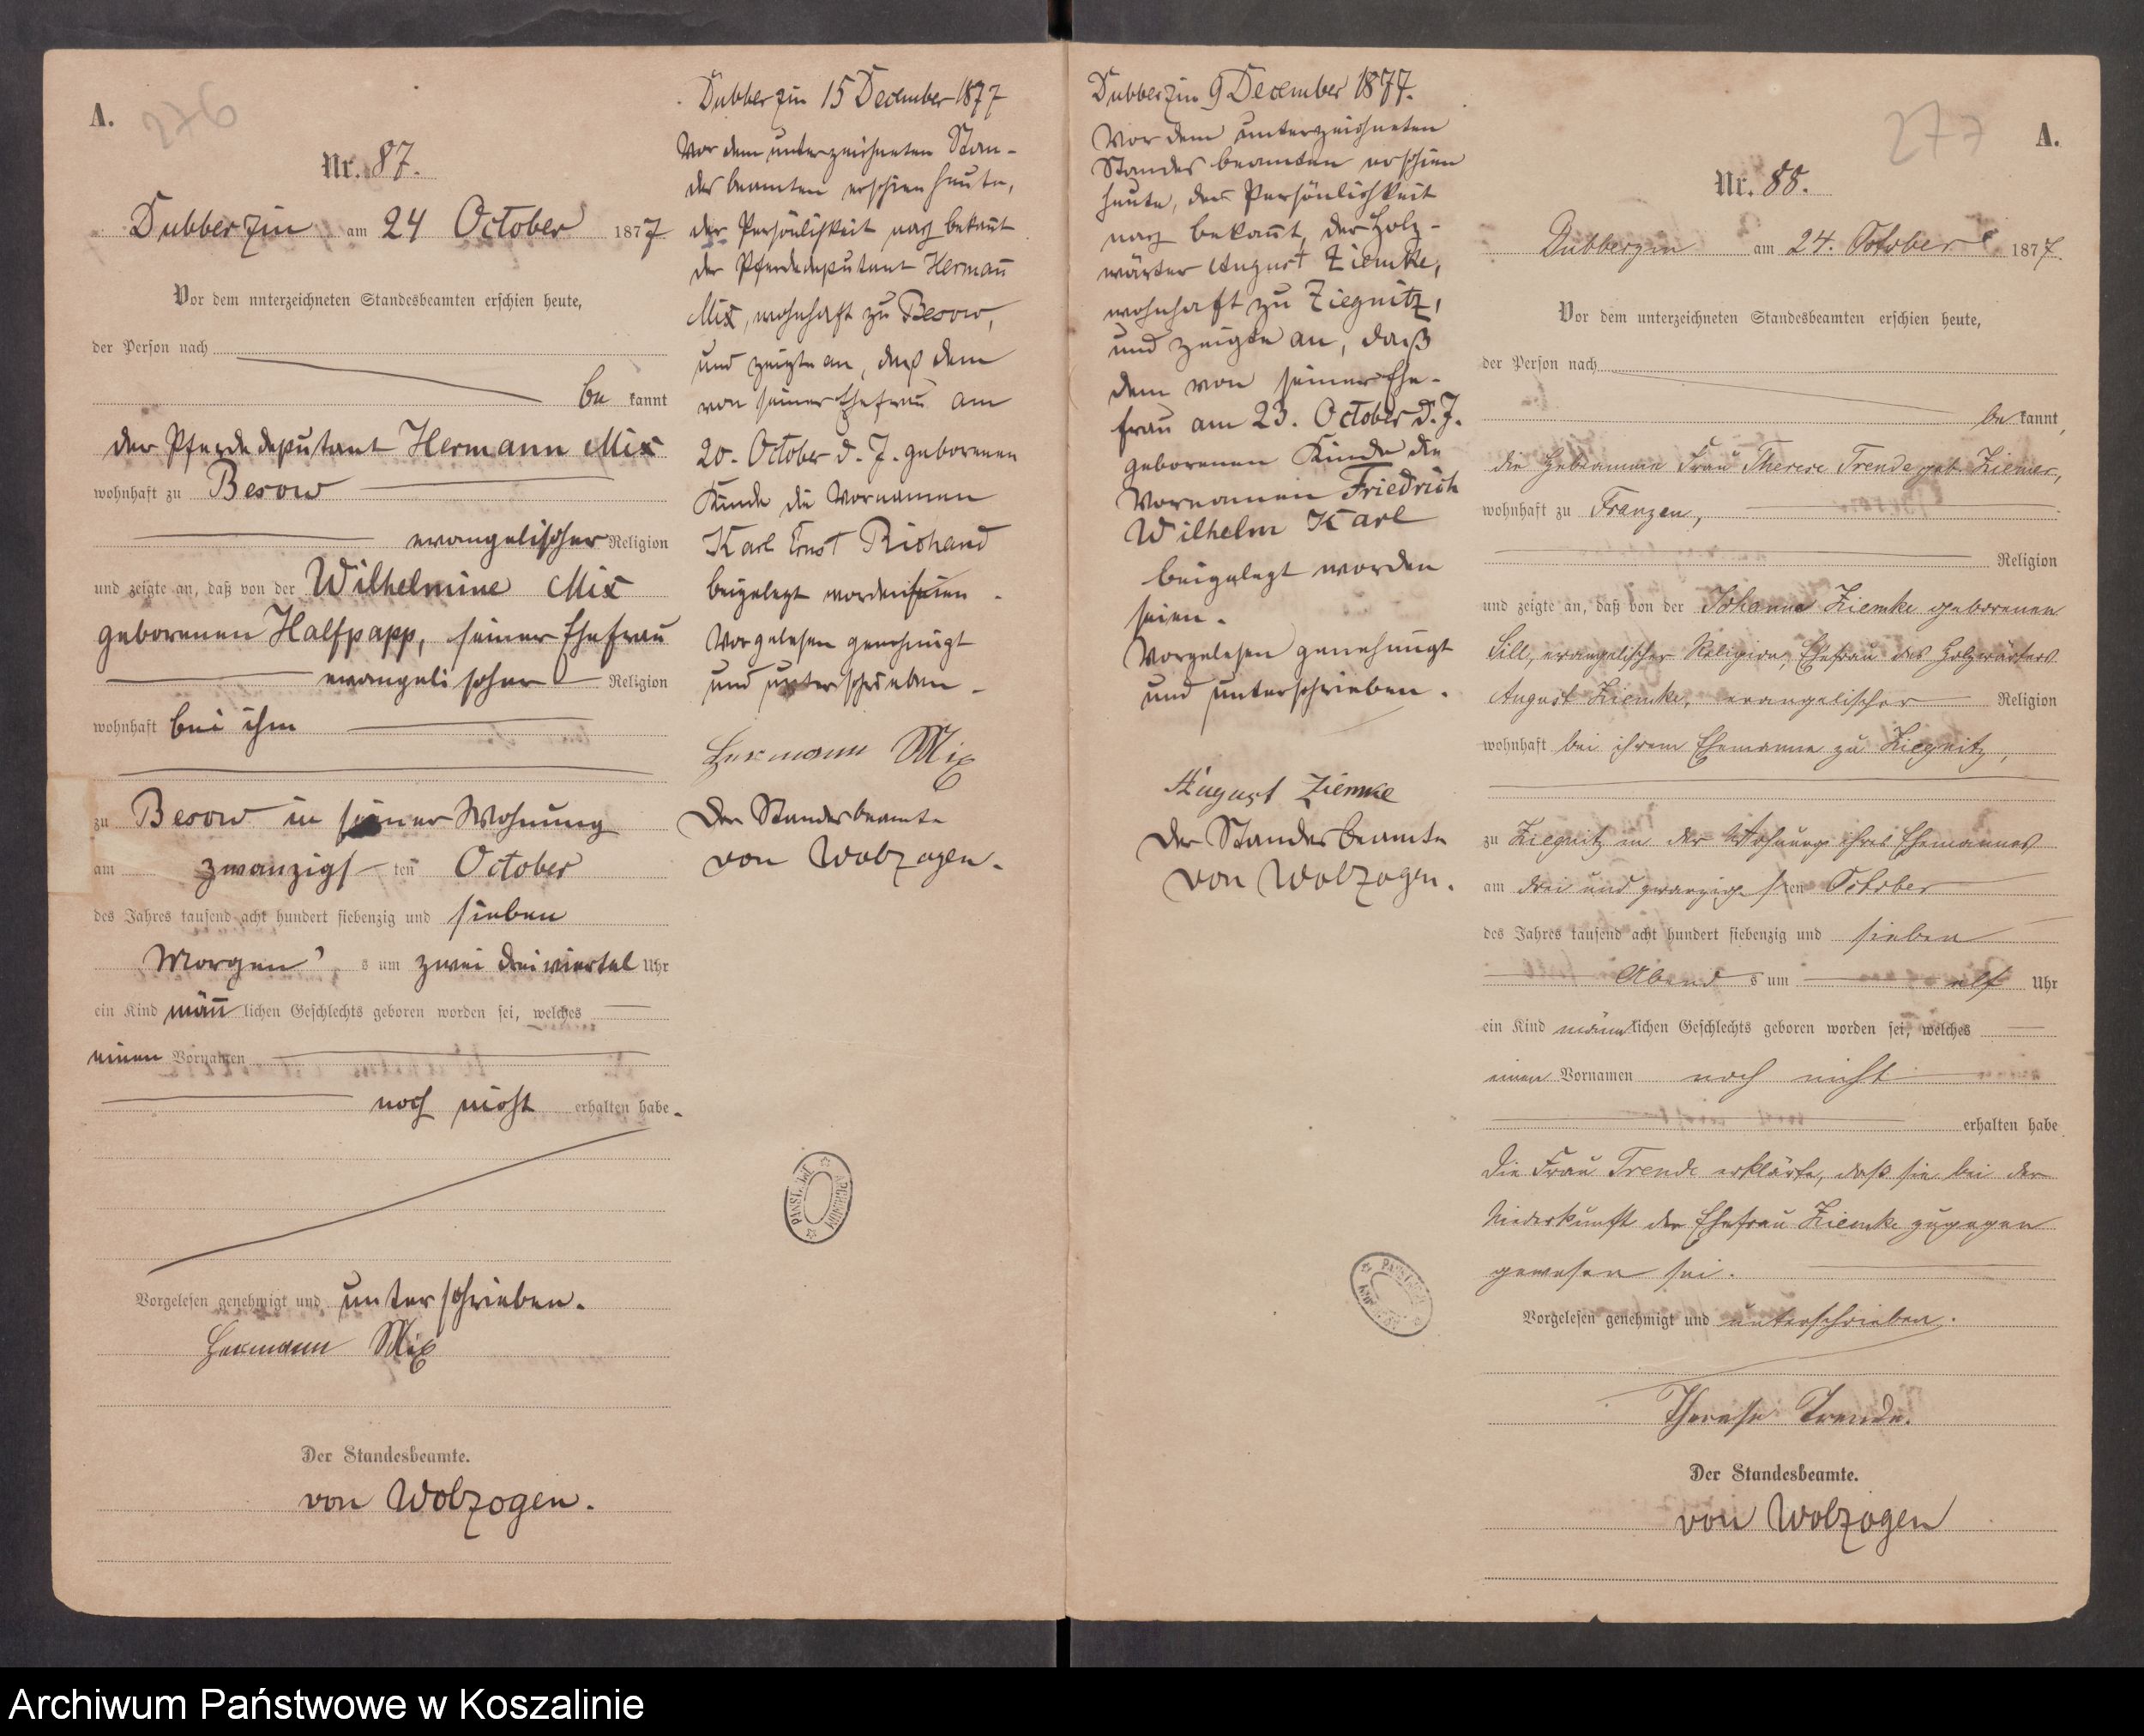 A.
276
Nr. 87.
Dubberzin am 24 October 1877
Vor dem unterzeichneten Standesbeamten erschien heute,
der Person nach
be kannt
der Pferdedeputant Hermann Mix
wohnhaft zu Besow
evangelischer Religion
und zeigte an, daß von der Wilhelmine Mix
geborenen Halfpapp, seiner Ehefrau
evangelischer Religion
wohnhaft bei ihm
zu Besow in seiner Wohnung
am zwanzigsten October
des Jahres tausend acht hundert siebenzig und sieben
Morgens um zwei dreiviertel Uhr
ein Kind männlichen Geschlechts geboren worden sei, welches
einen Vornamen
noch nicht erhalten habe.
Vorgelesen genehmigt und unterschrieben.
Hermann Mix
Der Standesbeamte.
von Wolzogen.
Dubberzin 15 December 1877
Vor dem unterzeichneten Stan-
desbeamten erschien heute,
der Persönlichkeit nach bekañt
der Pferdedeputant Hermañ
Mix, wohnhaft zu Besow,
und zeigte an, daß dem
von seiner Ehefrau am
20. October d. J. geborenen
Kinde die Vornamen
Karl Ernst Richard
beigelegt worden seien.
Vorgelesen genehmigt
und unterschrieben.
Hermann Mix
Der Standesbeamte
von Wolzogen.
PAŃSTW.
ARCHIWUM
Dubberzin 9 December 1877.
Vor dem unterzeichneten
Standesbeamten erschien
heute, der Persönlichkeit
nach bekañt, der Holz-
wärter August Ziemke,
wohnhaft zu Ziegnitz,
und zeigte an, daß
dem von seiner Ehe-
frau am 23. October d. J.
geborenen Kinde die
Vornamen Friedrich
Wilhelm Karl
beigelegt worden
seien.
Vorgelesen genehmigt
und unterschrieben.
August Ziemke
Der Standesbeamte
von Wolzogen.
277
A.
Nr. 88.
Dubberzin am 24. October 1877.
Vor dem unterzeichneten Standesbeamten erschien heute,
der Person nach
be kannt,
die Hebamme Frau Therese Trende geb. Ziemer,
wohnhaft zu Franzen,
Religion
und zeigte an, daß von der Johanna Ziemke geborenen
Sill, evangelischer Religion, Ehefrau des Holzwärters
August Ziemke, evangelischer Religion
wohnhaft bei ihrem Ehemanne zu Ziegnitz,
zu Ziegnitz in der Wohnung ihres Ehemannes
am drei und zwanzigsten October
des Jahres tausend acht hundert siebenzig und sieben
Abends um elf Uhr
ein Kind männlichen Geschlechts geboren worden sei, welches
einen Vornamen noch nicht
erhalten habe
Die Frau Trende erklärte, daß sie bei der
Niederkunft der Ehefrau Ziemke zugegen
gewesen sei.
Vorgelesen genehmigt und unterschrieben.
Therese Trende.
Der Standesbeamte.
von Wolzogen
Archiwum Państwowe w Koszalinie